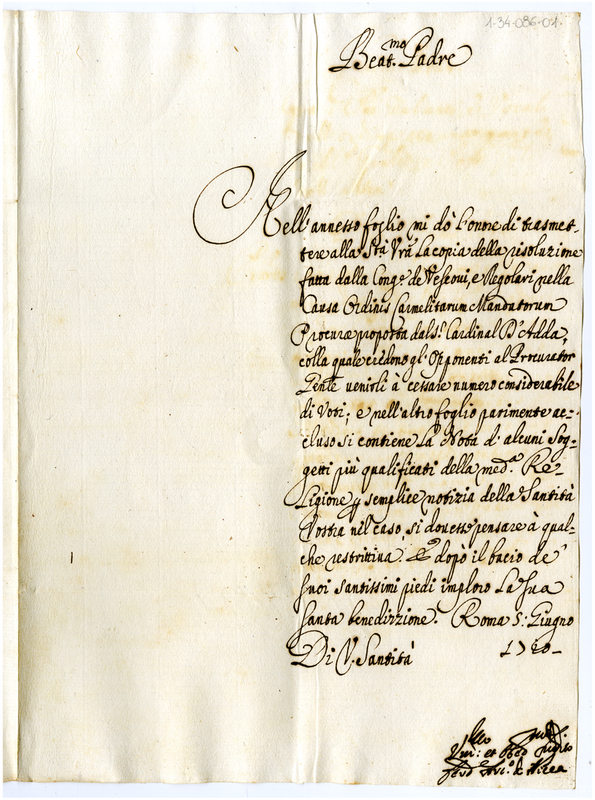 1-34-086-01.
Beat.mo Padre
Nell'annesso foglio mi dò l'onore di trasmet-
tere alla Stà Vrà La copia della risoluzione
fatta dalla Cong.e de Vescovi, e Regolari nella
Causa Ordinis Carmelitarum Mandatorum
Procuræ proposta dal S.r Cardinal D'Adda,
colla quale credono gl'Opponenti al Procurator
Gen.le venirli à cessare numero considerabile
di Voti; e nell'altro foglio parimente ac-
cluso si contiene La Nota d'alcuni Sog-
getti più qualificati della med.a Re-
Ligione p semplice notizia della Santità
Vostra nel caso, si dovesse pensare à qual-
che restrittiva. E dopò il bacio de'
suoi Santissimi piedi imploro La sua
santa benedizzione. Roma 5: Giugno
Di V. Santità 1710-
Um: et